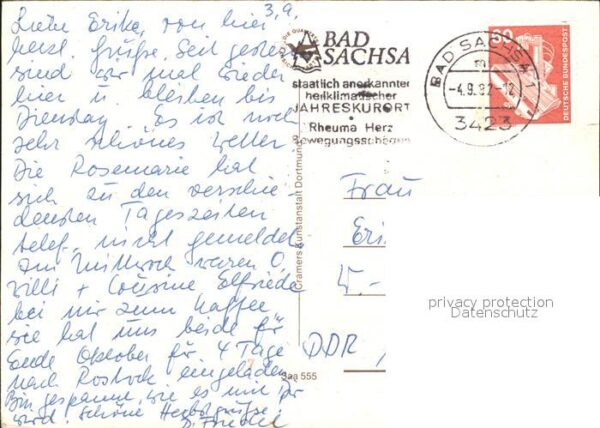 3.9.
Liebe Erika, von hier
herzl. Grüße. Seit gestern
sind wir mal wieder
hier u. bleiben bis
Dienstag. Es ist noch
sehr schönes Wetter
Die Rosemarie hat
sich zu den verschie-
densten Tageszeiten
telef. nicht gemeldet
Am Mittwoch waren O.
Willi + Cousine Elfriede
bei mir zum Kaffee
sie hat uns beide für
Ende Oktober für 4 Tage
nach Rostock eingeladen
Bin gespannt, wie es mit ihr
wird. Schöne Herbstgrüße
BAD
SACHSA
staatlich anerkannter
heilklimatischer
JAHRESKURORT
Rheuma Herz
Bewegungsschäden
BAD SACHSA 1
-4.9.82-12
3423
60
DEUTSCHE BUNDESPOST
Cramers Kunstanstalt Dortmund
Saa 555
Frau
Eri
W.-
DDR
privacy protection
Datenschutz